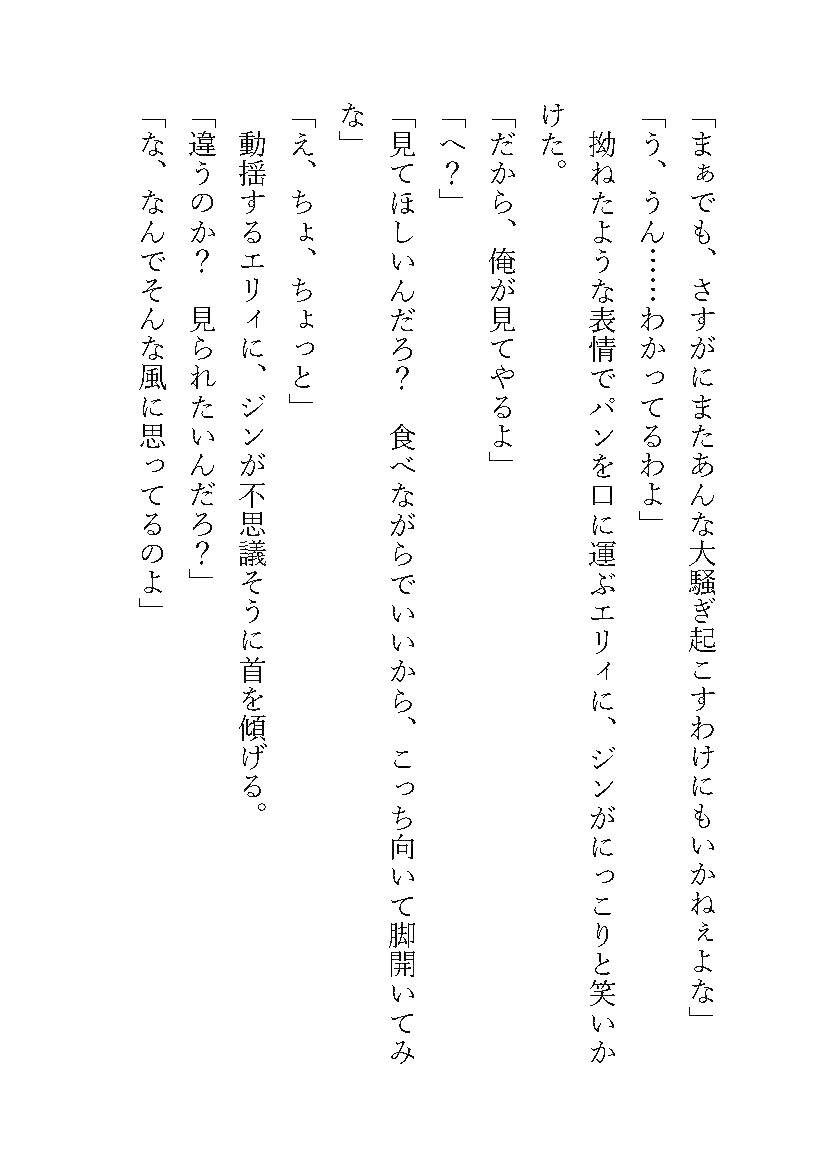 「まぁでも、さすがにまたあんな大騒ぎ起こすわけにもいかねぇよな」
「う、うん……わかってるわよ」
　拗ねたような表情でパンを口に運ぶエリィに、ジンがにっこりと笑いか
けた。
「だから、俺が見てやるよ」
「へ？」
「見てほしいんだろ？　食べながらでいいから、こっち向いて脚開いてみ
な」
「え、ちょ、ちょっと」
　動揺するエリィに、ジンが不思議そうに首を傾げる。
「違うのか？　見られたいんだろ？」
「な、なんでそんな風に思ってるのよ」